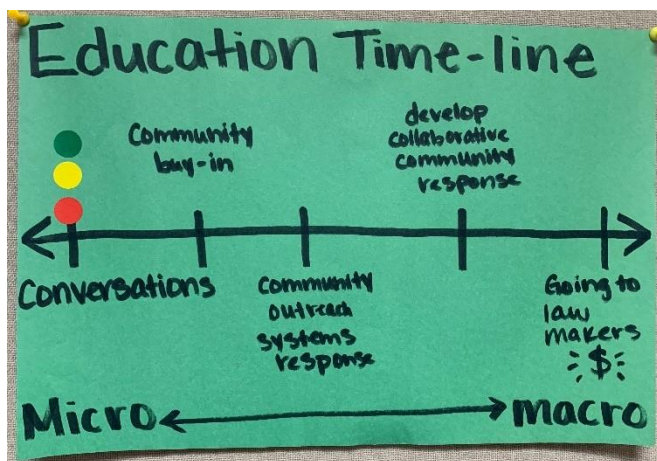 Education Time-line
Community
buy-in
develop
collaborative
community
response
Conversations
Community
outreach
systems
response
Going to
law
makers
$
Micro
macro